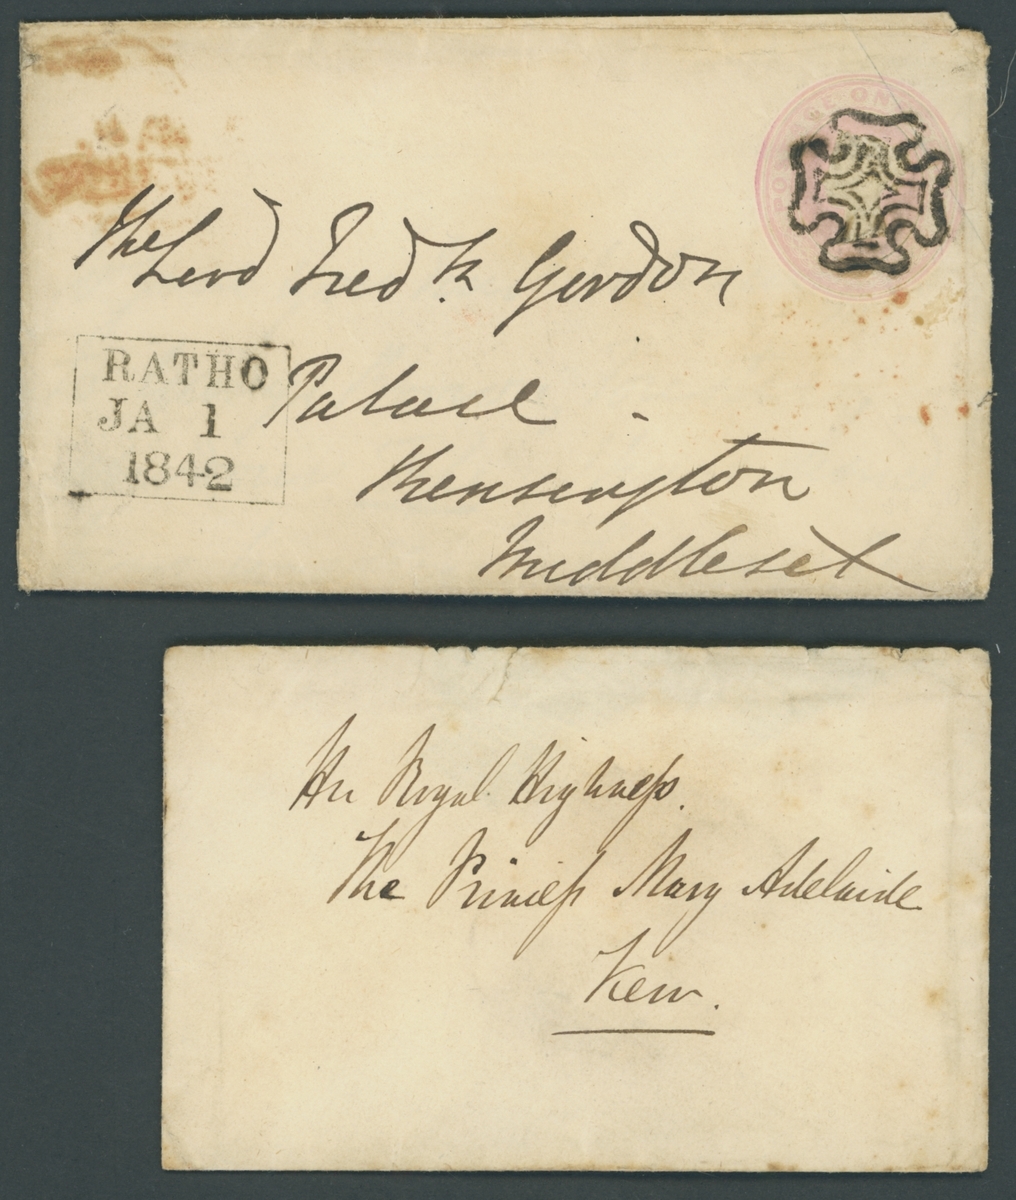 POSTAGE ON
The Lord Fredk. Gordon
RATHO
JA 1
1842
Palace
Kensington
Middlesex
Her Royal Highness.
The Princess Mary Adelaide
Kew.